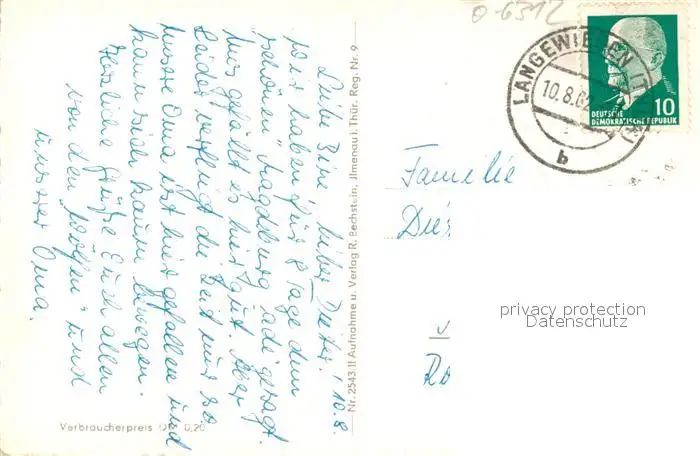 Liebe Bine, lieber Dieter! 10.8.
Wir haben für 8 Tage dem
schönen Magdeburg ade gesagt.
Uns gefällt es hier gut. Aber
leider verfliegt die Zeit nur so
unsere Oma ist hier gefallen und
kann sich kaum bewegen.
Herzliche Grüße Euch allen
von den und
unserer Oma.
Verbraucherpreis 0,20
Nr. 2543 II Aufnahme u. Verlag R. Bechstein, Ilmenau i. Thür. Reg. Nr. 9
0-6312
LANGEWIESEN
10.8.6
b
10
DEUTSCHE
DEMOKRATISCHE REPUBLIK
Familie
privacy protection
Datenschutz